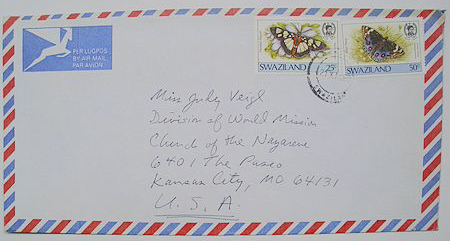 PER LUGPOS
BY AIR MAIL
PAR AVION
25c
SWAZILAND
50c
SWAZILAND
Miss Judy Veigl
Division of World Mission
Church of the Nazarene
6401 The Paseo
Kansas City, MO 64131
U.S.A.